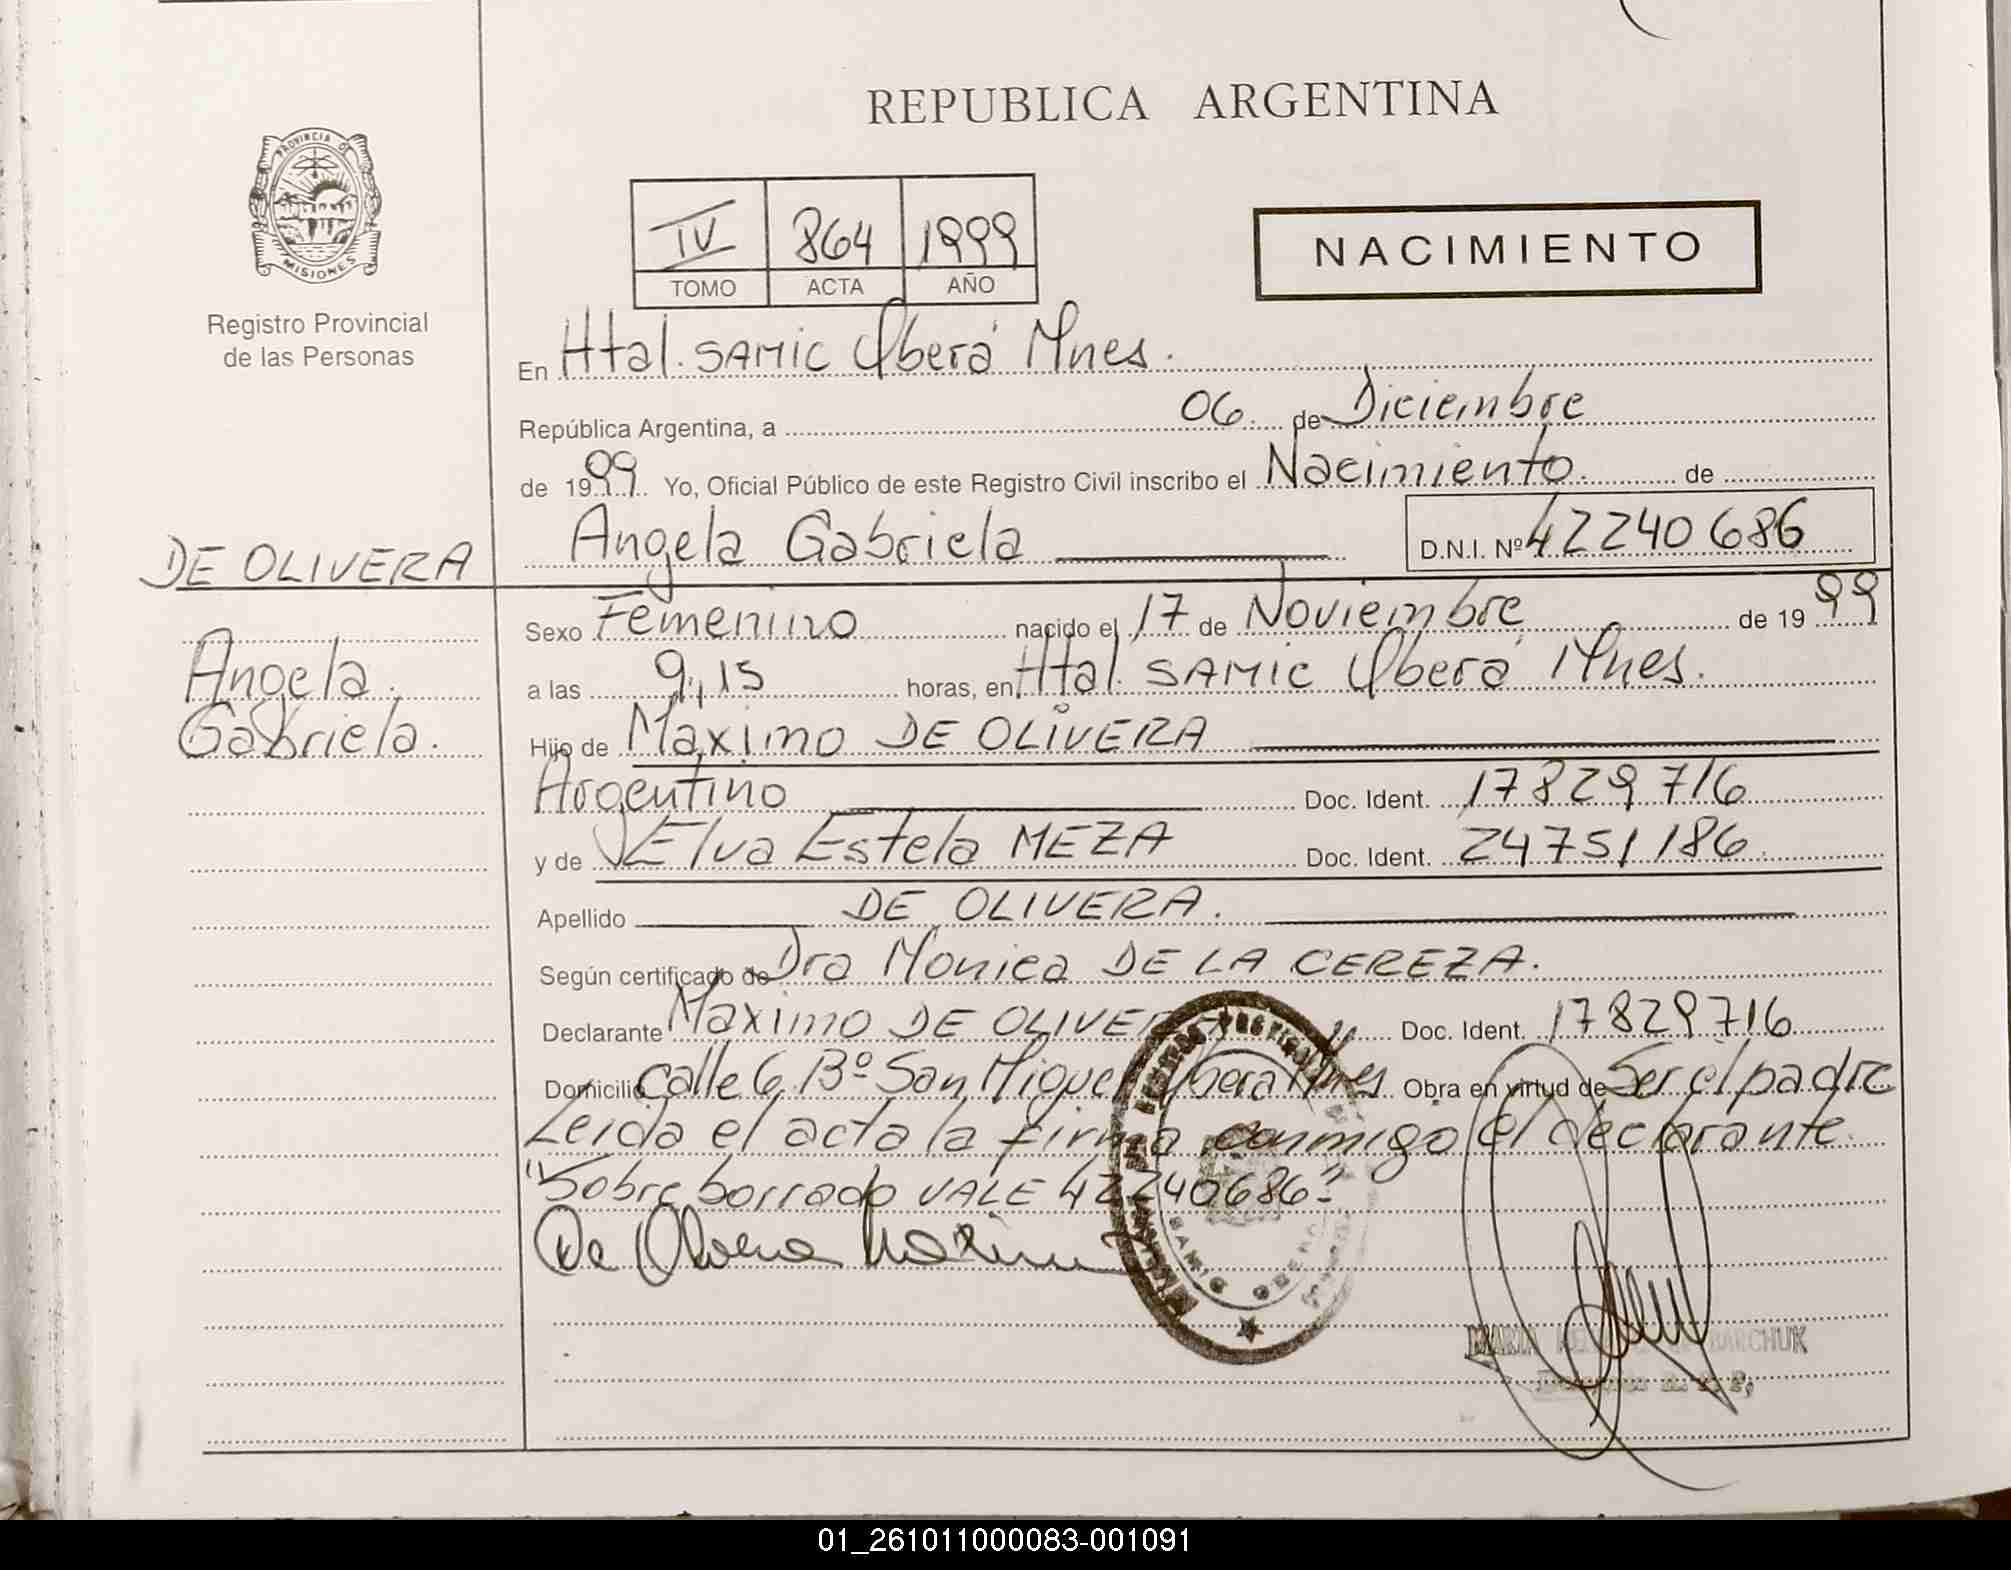 REPUBLICA ARGENTINA
PROVINCIA DE
MISIONES
Registro Provincial
de las Personas
IV 864 1999
TOMO ACTA AÑO
NACIMIENTO
En Htal. SAMIC Oberá Mnes.
República Argentina, a 06 de Diciembre
de 1999. Yo, Oficial Público de este Registro Civil inscribo el Nacimiento. de
Angela Gabriela D.N.I. Nº 42240686
DE OLIVERA
Angela
Gabriela.
Sexo Femenino nacido el 17 de Noviembre de 1999
a las 9,15 horas, en Htal. SAMIC Oberá Mnes.
Hijo de Maximo DE OLIVERA
Argentino Doc. Ident. 17829716
y de Elva Estela MEZA Doc. Ident. 24751186
Apellido DE OLIVERA.
Según certificado de Dra Monica DE LA CEREZA.
Declarante Maximo DE OLIVERA Doc. Ident. 17829716
Domicilio calle 6 Bº San Miguel Obera Mnes Obra en virtud de Ser el padre
Leida el acta la firma conmigo el declarante.
"Sobre borrado VALE 42240686"
De Olivera Maximo
SAMIC OBERA
MARIA BARCHUK
01_261011000083-001091